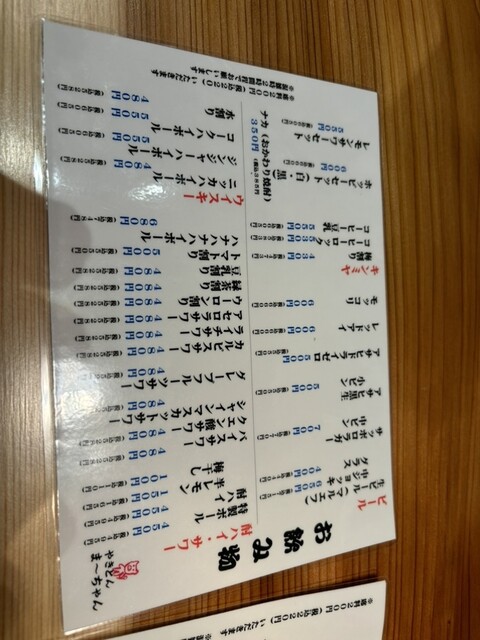 お飲み物
やきとん
ま～ちゃん
ビール
生ビール(マルエフ)
中ジョッキ
グラス 400円(税込440円)
サッポロラガー
中ビン 700円(税込770円)
アサヒ黒生
小ビン 500円(税込550円)
アサヒドライゼロ
500円(税込550円)
レッドアイ 600円(税込660円)
マッコリ 600円(税込660円)
キンミヤ
梅割り 430円(税込473円)
コーヒーロック 530円
コーヒー豆乳 550円
ホッピーセット(白・黒)
600円(税込660円)
ナカ(おかわり焼酎)
350円(税込385円)
レモンサワーセット
550円(税込605円)
酎ハイ・サワー
特製ボール 450円(税込495円)
酎ハイ 450円(税込495円)
半レモン 100円(税込110円)
梅干し 100円(税込110円)
バイスサワー 480円(税込528円)
クエン酸サワー
シャインマスカットサワー
グレープフルーツサワー
カルピスサワー 480円(税込528円)
ライチサワー 480円(税込528円)
アセロラサワー 480円(税込528円)
ウーロン割り 480円(税込528円)
緑茶割り 480円(税込528円)
豆乳割り 480円(税込528円)
トマト割り 500円(税込550円)
ハナハナハイボール
680円(税込748円)
ウイスキー
ニッカハイボール
480円(税込528円)
ジンジャーハイボール
550円(税込605円)
コークハイボール
550円(税込605円)
水割り 480円(税込528円)
※席料200円(税込220)いただきます
※混雑時2時間制でお願いします
※席料200円(税込220)いただきます